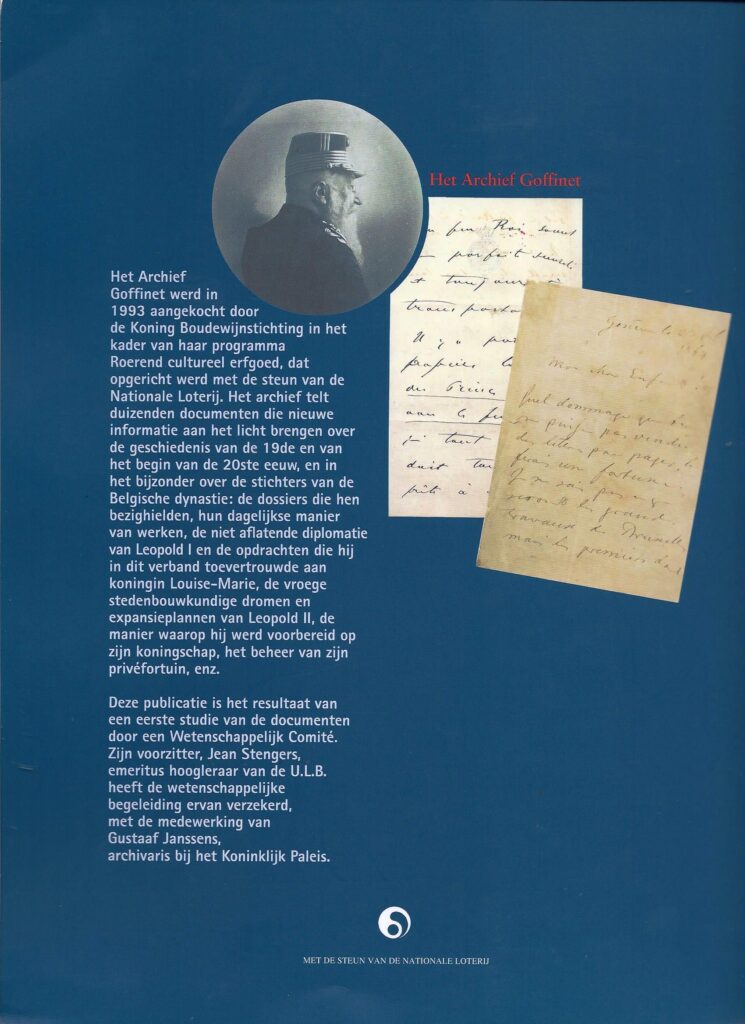 Het Archief Goffinet
Het Archief
Goffinet werd in
1993 aangekocht door
de Koning Boudewijnstichting in het
kader van haar programma
Roerend cultureel erfgoed, dat
opgericht werd met de steun van de
Nationale Loterij. Het archief telt
duizenden documenten die nieuwe
informatie aan het licht brengen over
de geschiedenis van de 19de en van
het begin van de 20ste eeuw, en in
het bijzonder over de stichters van de
Belgische dynastie: de dossiers die hen
bezighielden, hun dagelijkse manier
van werken, de niet aflatende diplomatie
van Leopold I en de opdrachten die hij
in dit verband toevertrouwde aan
koningin Louise-Marie, de vroege
stedenbouwkundige dromen en
expansieplannen van Leopold II, de
manier waarop hij werd voorbereid op
zijn koningschap, het beheer van zijn
privéfortuin, enz.
Deze publicatie is het resultaat van
een eerste studie van de documenten
door een Wetenschappelijk Comité.
Zijn voorzitter, Jean Stengers,
emeritus hoogleraar van de U.L.B.
heeft de wetenschappelijke
begeleiding ervan verzekerd,
met de medewerking van
Gustaaf Janssens,
archivaris bij het Koninklijk Paleis.
feu Roi
parfait
Il y a
des Princes
Mon cher
quel dommage que
pas vendre
pages
une fortune
je ne sais pas
grand
travaux de Bruxelles
mais les premiers
MET DE STEUN VAN DE NATIONALE LOTERIJ